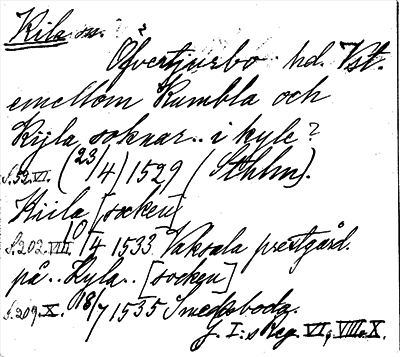 Kila sn.
Öfvertjurbo hd. Vst.
emellom Kumbla och
Kijla soknar.. i kyle?
S.52.VI. (23/4) 1529 (Sthlm).
Kiila [socken]
S.202.VIII. 10/4 1533 Vaksala prestgård.
på.. Kyla.. [socken]
S.209.X. 18/7 1535 Snedsboda.
G. I:s Reg. VI, VIII, X.